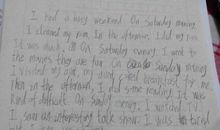 I had a busy weekend. On Saturday morning
I cleaned my room. In the afternoon, I did my
It was much. On Saturday evening, I went to
the movies they are fun. On Sunday morning
I visited my my aunt cooked breakfast for me.
Then in the afternoon, I did some reading. It was
kind of difficult. On Sunday evening, I watched TV
I saw an interesting talk show. I was